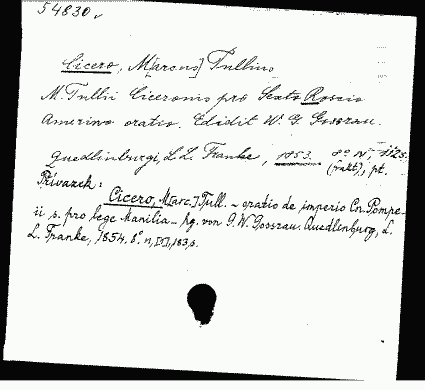 54830.
Cicero, M[arcus] Tullius
M. Tullii Ciceronis pro Sexto Roscio
Amerino oratio. Edidit W. G. Gossrau.
Quedlinburgi, L. L. Franke, 1853. 8° IV, 112 s.
pt.
Přívazek:
Cicero, M[arc.] Tull. – oratio de imperio Cn. Pompe-
ii s. pro lege Manilia – hg. von G. W. Gossrau. Quedlinburg, L.
L. Franke, 1854, 8°